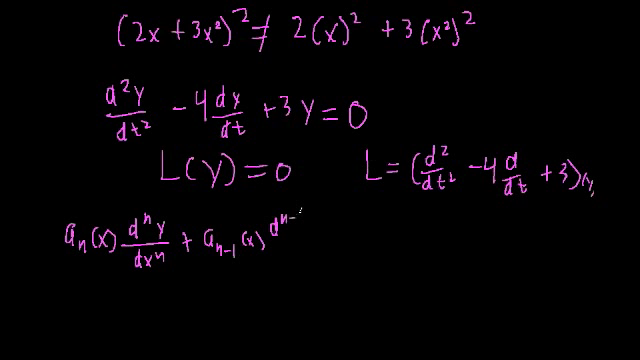 (2x + 3x²)² ≠ 2(x)² + 3(x²)²
d²y/dt² - 4 dy/dt + 3y = 0
L(y) = 0    L = (d²/dt² - 4 d/dt + 3)(y)
aₙ(x) dⁿy/dxⁿ + aₙ₋₁(x) dⁿ⁻